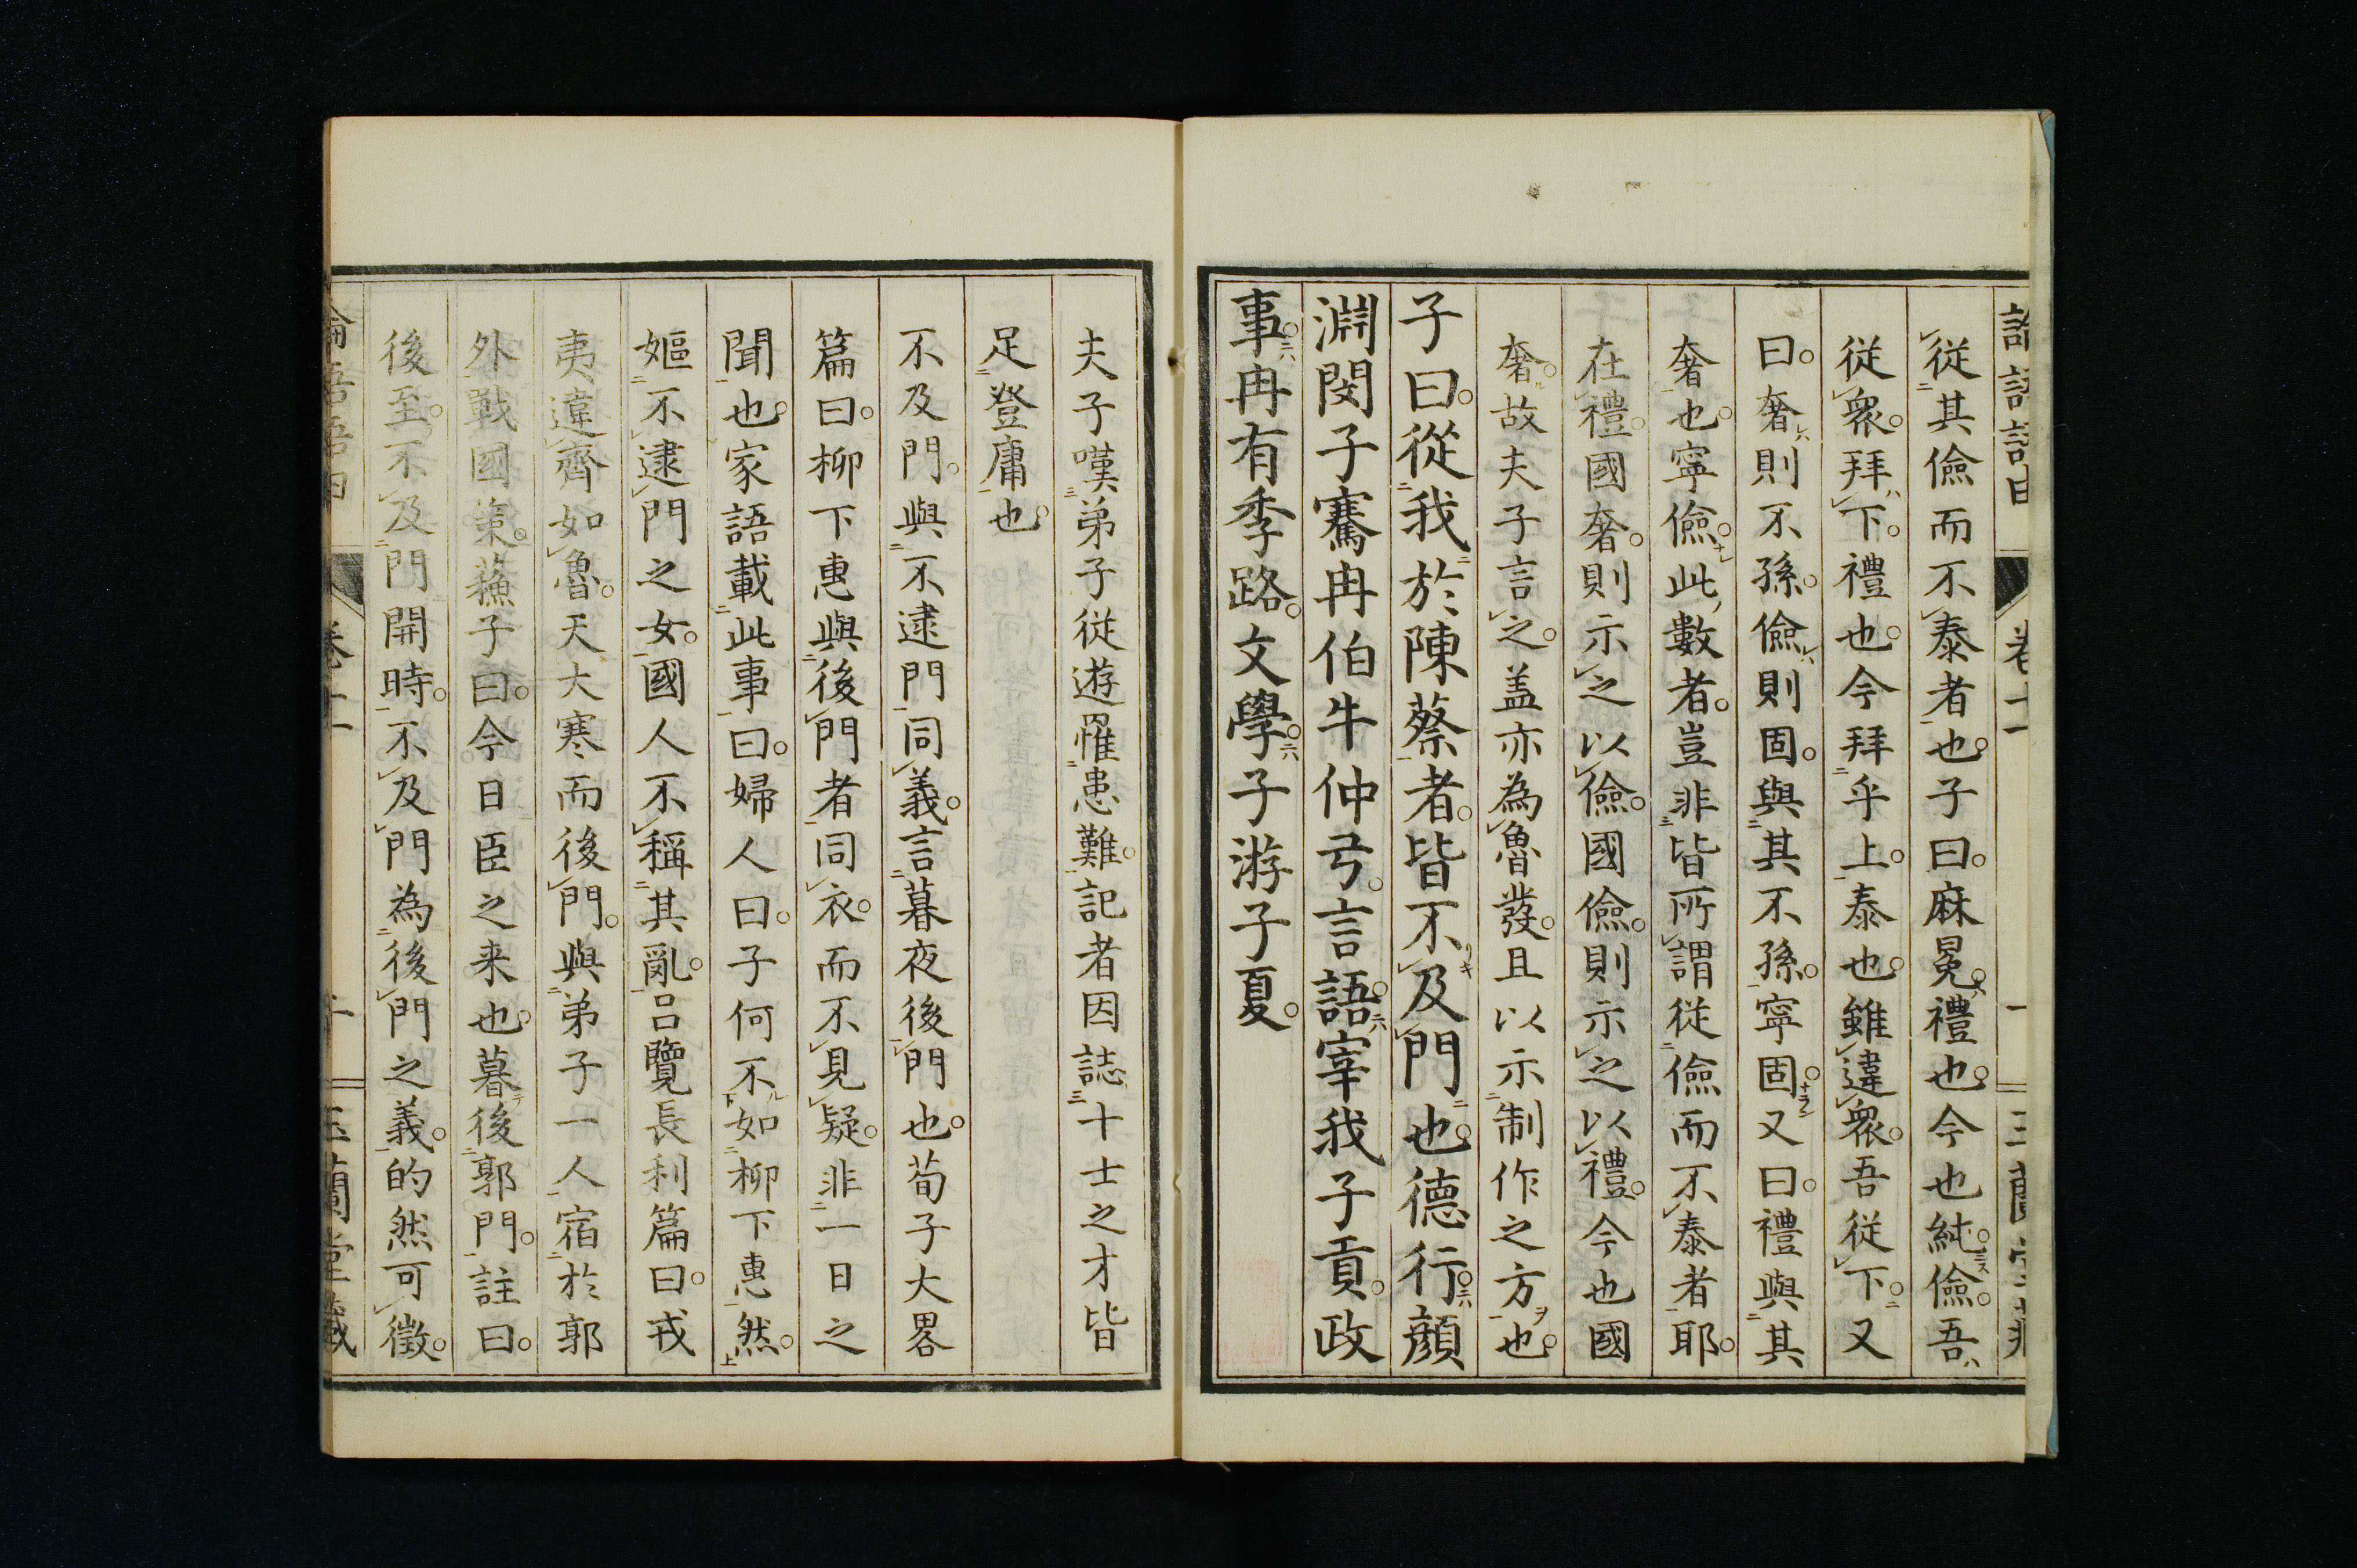 從其儉而不泰者也子曰麻冕禮也今也純儉吾
從衆拜下禮也今拜乎上泰也雖違衆吾從下又
曰奢則不孫儉則固與其不孫寧固又曰禮與其
奢也寧儉此數者豈非皆所謂從儉而不泰者耶
在禮國奢則示之以儉國儉則示之以禮今也國
奢故夫子言之盖亦為魯發且以示制作之方也
子曰從我於陳蔡者皆不及門也德行顔
淵閔子騫冉伯牛仲弓言語宰我子貢政
事冉有季路文學子游子夏
夫子嘆弟子従遊罹患難記者因誌十士之才皆
足登庸也
不及門與不逮門同義言暮夜後門也荀子大畧
篇曰柳下惠與後門者同衣而不見疑非一日之
聞也家語載此事曰婦人曰子何不如柳下惠然
嫗不逮門之女國人不稱其亂呂覽長利篇曰戎
夷違齊如魯天大寒而後門與弟子一人宿於郭
外戰國策蘓子曰今日臣之来也暮後郭門註曰
後至不及門開時不及門為後門之義的然可徵
論語語由 卷十一 玉蘭堂藏